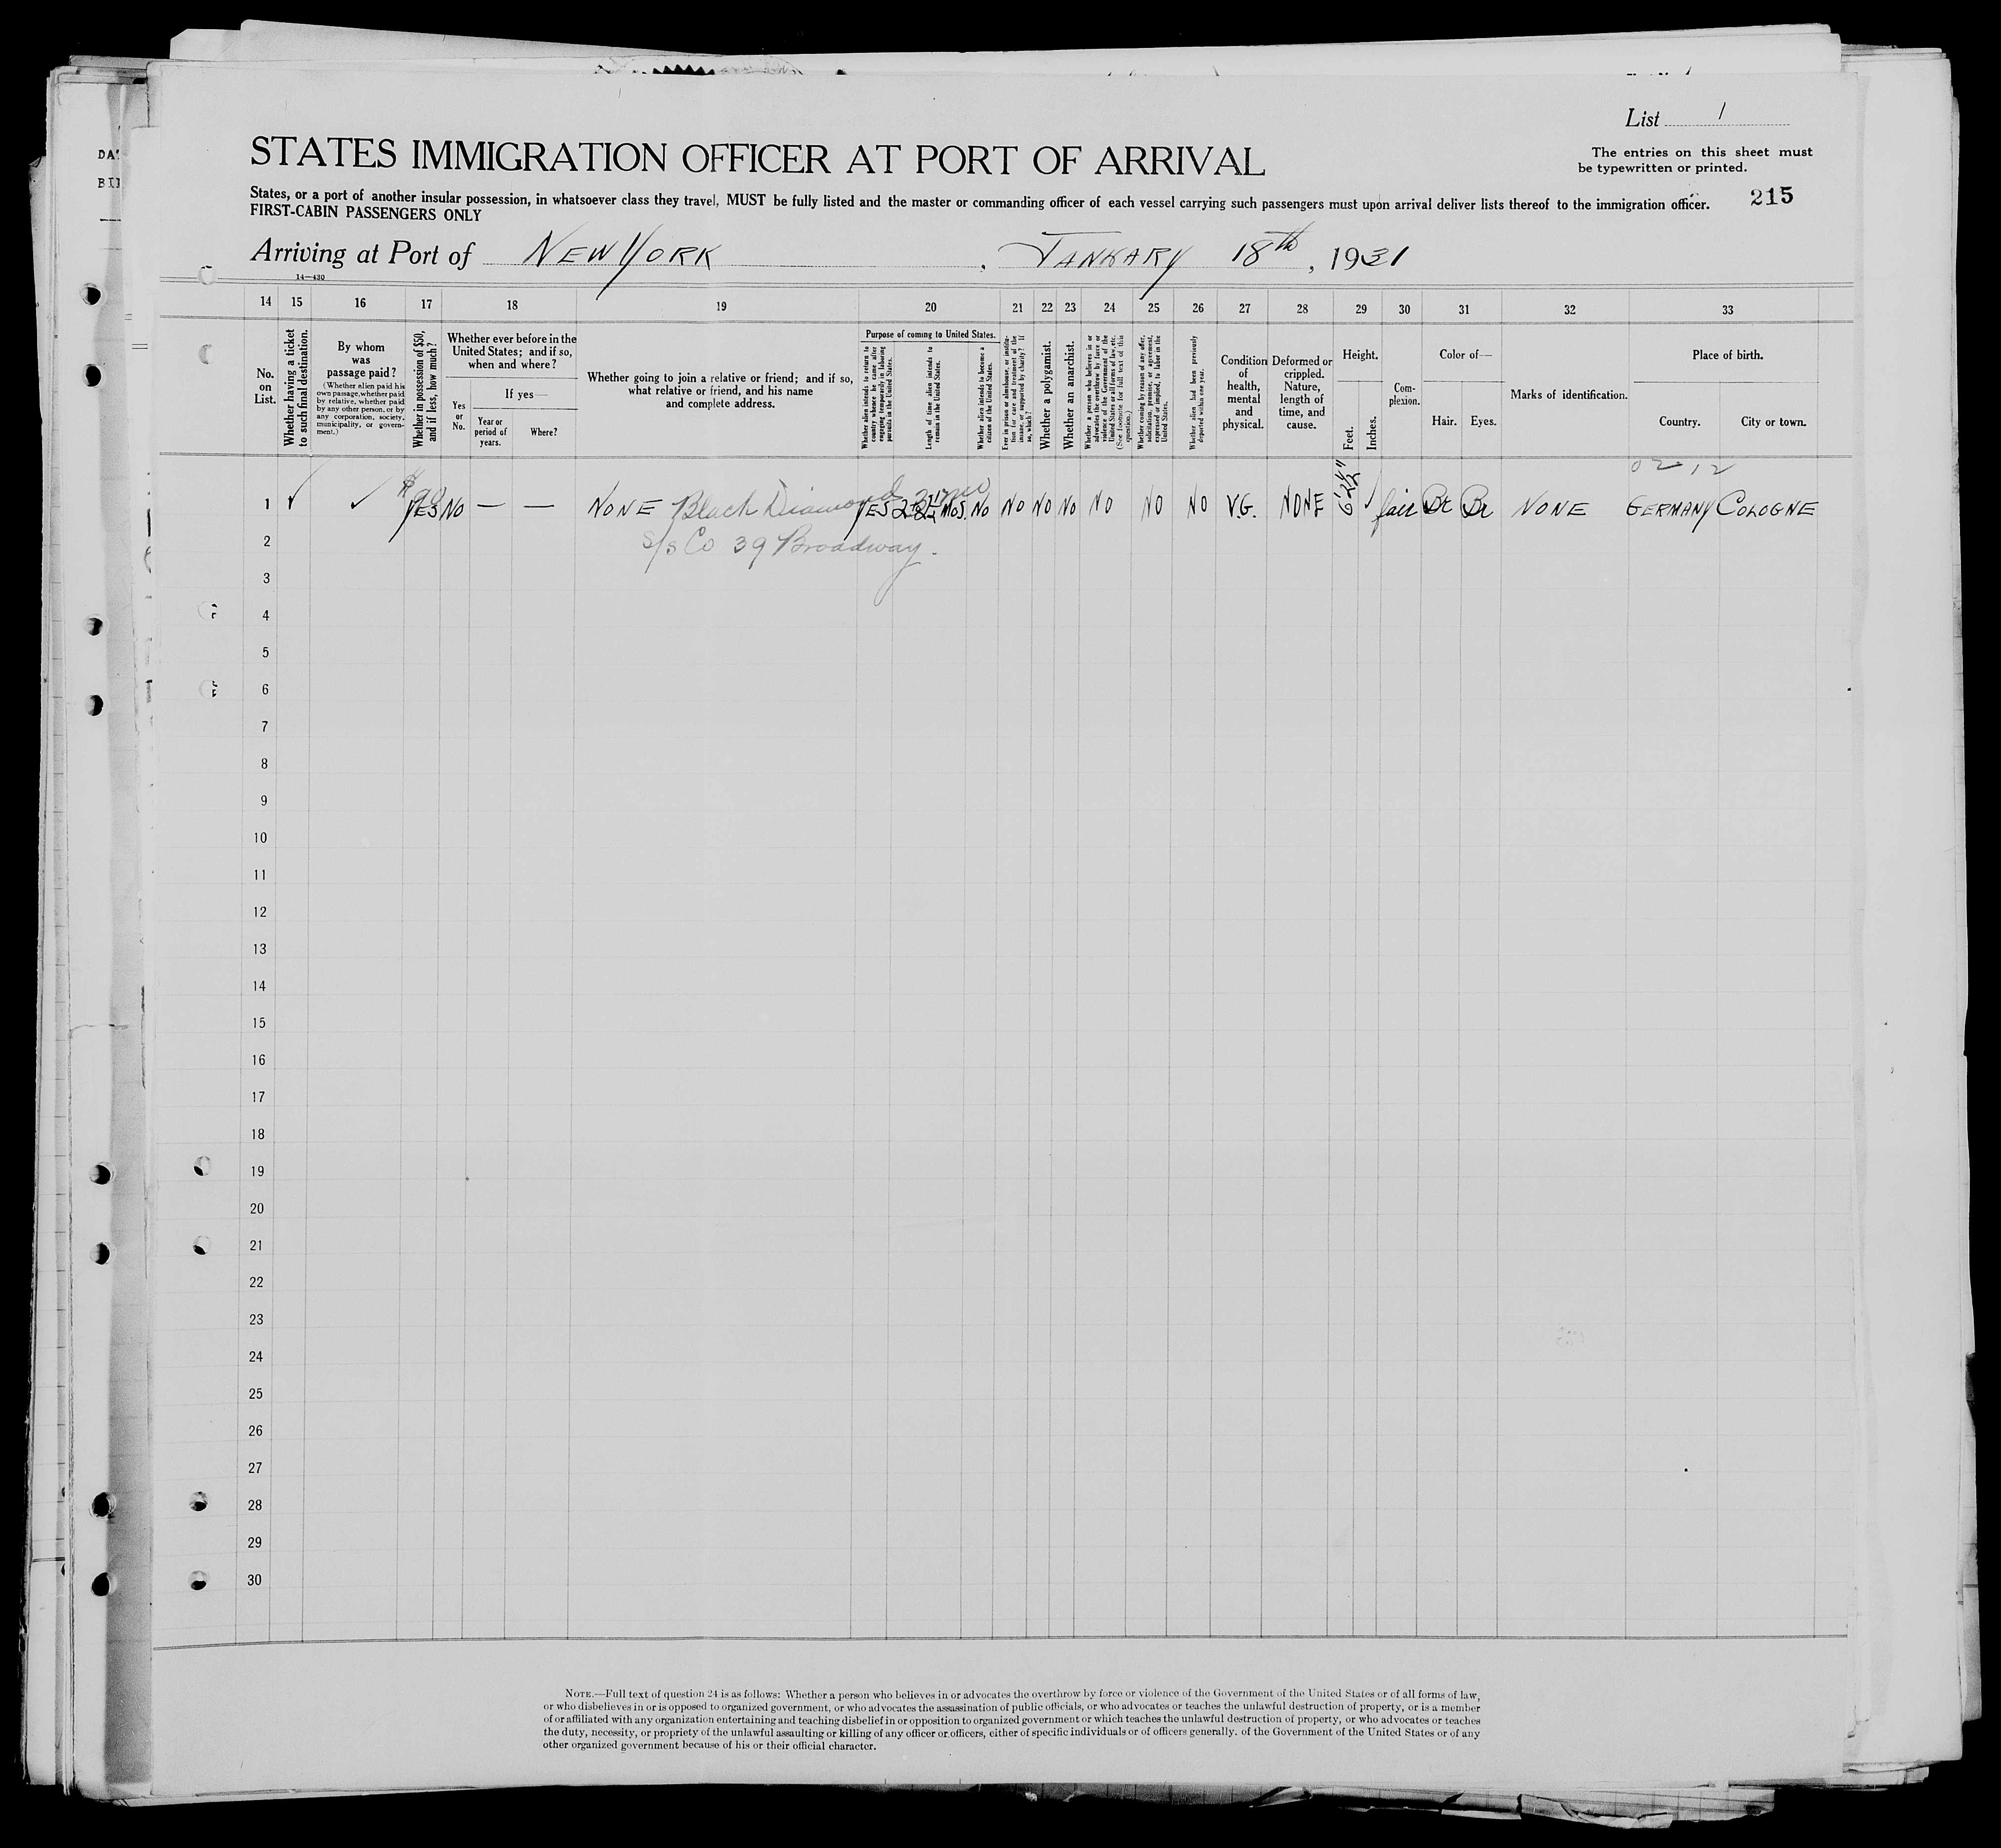 DA
BI
List 1
STATES IMMIGRATION OFFICER AT PORT OF ARRIVAL
The entries on this sheet must
be typewritten or printed.
States, or a port of another insular possession, in whatsoever class they travel, MUST be fully listed and the master or commanding officer of each vessel carrying such passengers must upon arrival deliver lists thereof to the immigration officer.
215
FIRST-CABIN PASSENGERS ONLY
Arriving at Port of NEW YORK, JANUARY 18th, 1931
14—430
14 15 16 17 18 19 20 21 22 23 24 25 26 27 28 29 30 31 32 33
No. on List.
Whether having a ticket to such final destination.
By whom was passage paid?
(Whether alien paid his own passage, whether paid by relative, whether paid by any other person, or by any corporation, society, municipality, or government.)
Whether in possession of $50, and if less, how much?
Whether ever before in the United States; and if so, when and where?
Yes or No.
If yes—
Year or period of years.
Where?
Whether going to join a relative or friend; and if so, what relative or friend, and his name and complete address.
Purpose of coming to United States.
Whether alien intends to return to country whence he came after engaging temporarily in laboring pursuits in the United States.
Length of time alien intends to remain in the United States.
Whether alien intends to become a citizen of the United States.
Ever in prison or almshouse, or institution for care and treatment of the insane, or supported by charity? If so, which?
Whether a polygamist.
Whether an anarchist.
Whether a person who believes in or advocates the overthrow by force or violence of the Government of the United States or all forms of law, etc. (See footnote for full text of this question.)
Whether coming by reason of any offer, solicitation, promise, or agreement, expressed or implied, to labor in the United States.
Whether alien had been previously deported within one year.
Condition of health, mental and physical.
Deformed or crippled. Nature, length of time, and cause.
Height.
Feet. Inches.
Complexion.
Color of—
Hair. Eyes.
Marks of identification.
Place of birth.
Country. City or town.
02 12
1 ✓ ✓ YES NO — — NONE Black Diamond YES MOS. NO NO NO NO NO NO NO V.G. NONE fair Br Br NONE GERMANY COLOGNE
2 S/S Co 39 Broadway.
3
4
5
6
7
8
9
10
11
12
13
14
15
16
17
18
19
20
21
22
23
24
25
26
27
28
29
30
NOTE.—Full text of question 24 is as follows: Whether a person who believes in or advocates the overthrow by force or violence of the Government of the United States or of all forms of law,
or who disbelieves in or is opposed to organized government, or who advocates the assassination of public officials, or who advocates or teaches the unlawful destruction of property, or is a member
of or affiliated with any organization entertaining and teaching disbelief in or opposition to organized government or which teaches the unlawful destruction of property, or who advocates or teaches
the duty, necessity, or propriety of the unlawful assaulting or killing of any officer or officers, either of specific individuals or of officers generally. of the Government of the United States or of any
other organized government because of his or their official character.